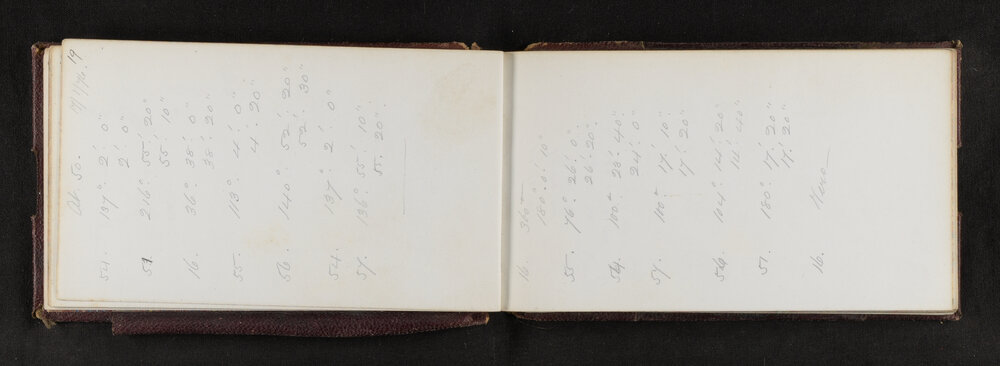 At 50. 19
54. 137° 2' 0"
2' 0"
51. 216° 55' 20"
55' 10"
16. 36° 38' 0"
38' 20"
55. 113° 4' 0"
4' 20"
56. 140° 52' 20"
52' 30"
54. 137° 2' 0"
57. 136° 55' 10"
5. 20"
16. 316
180° 0' 10"
55. 76° 26' 0"
26' 20"
54. 100 28' 40"
24' 0"
57. 100 17' 10"
17' 20"
56. 104° 14' 20"
14' 40"
51. 180° 17' 20"
17' 20"
16.